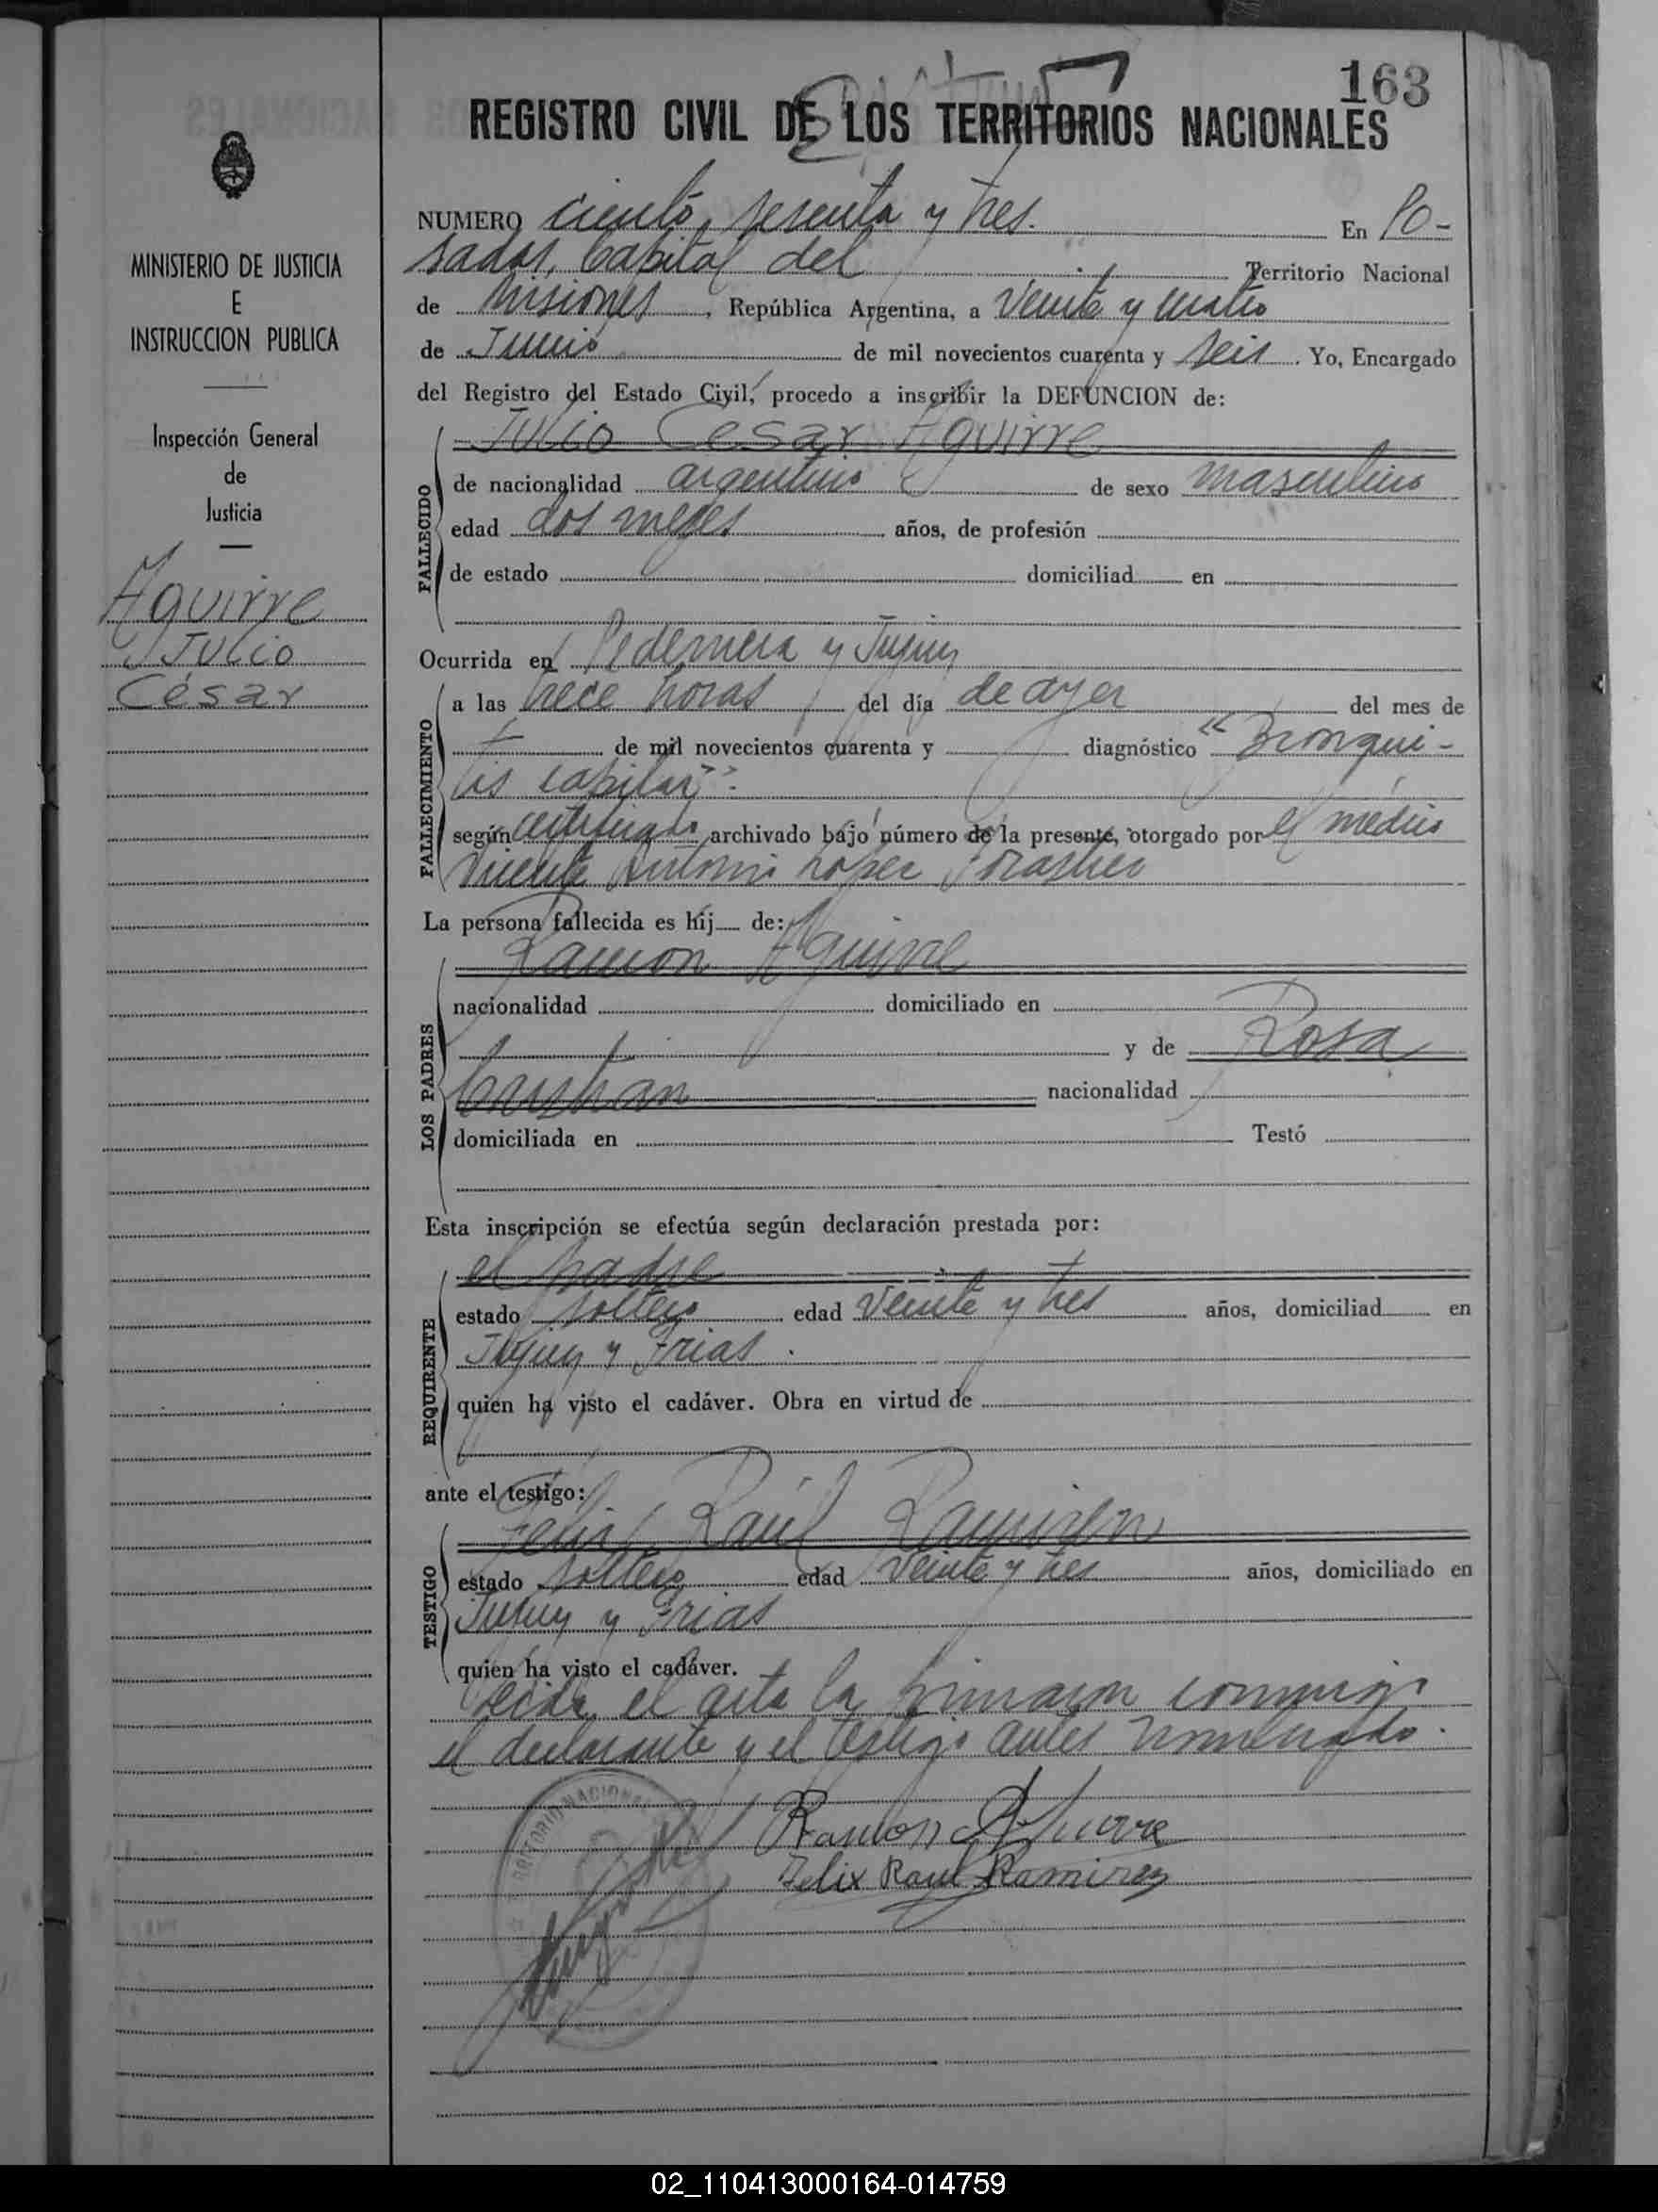 163
REGISTRO CIVIL DE LOS TERRITORIOS NACIONALES
MINISTERIO DE JUSTICIA
E
INSTRUCCION PUBLICA
Inspección General
de
Justicia
Aguirre
Julio
César
NUMERO ciento sesenta y tres. En Po-
sadas, Capital del Territorio Nacional
de Misiones, República Argentina, a veinte y cuatro
de Junio de mil novecientos cuarenta y seis. Yo, Encargado
del Registro del Estado Civil, procedo a inscribir la DEFUNCION de:
Julio Cesar Aguirre
FALLECIDO
de nacionalidad argentino de sexo masculino
edad dos meses años, de profesión
de estado domiciliad en
Ocurrida en Pedernera y Jujuy
FALLECIMIENTO
a las trece horas del día de ayer del mes de
de mil novecientos cuarenta y diagnóstico "Bronqui-
tis capilar".
según certificado archivado bajo número de la presente, otorgado por el médico
Vicente Antonio Lopez
La persona fallecida es hij de:
LOS PADRES
Ramon Aguirre
nacionalidad domiciliado en
y de Rosa
nacionalidad
domiciliada en Testó
Esta inscripción se efectúa según declaración prestada por:
REQUIRENTE
el padre
estado soltero edad veinte y tres años, domiciliad en
Jujuy y Frias.
quien ha visto el cadáver. Obra en virtud de
ante el testigo:
TESTIGO
Felix Raúl Ramirez
estado soltero edad veinte y tres años, domiciliado en
Jujuy y Frias
quien ha visto el cadáver.
Leida el acta la firmaron conmigo
el declarante y el testigo antes nombrado.
Ramon Aguirre
Felix Raul Ramirez
02_110413000164-014759